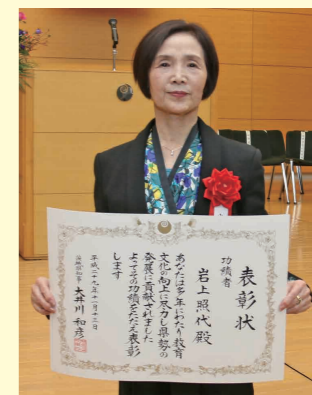 表彰状
功績者
岩上照代殿
あなたは多年にわたり教育
文化の向上に尽力し県勢の
発展に貢献されました
よってその功績をたたえ表彰
します
平成二十九年十一月十三日
茨城県知事 大井川和彦